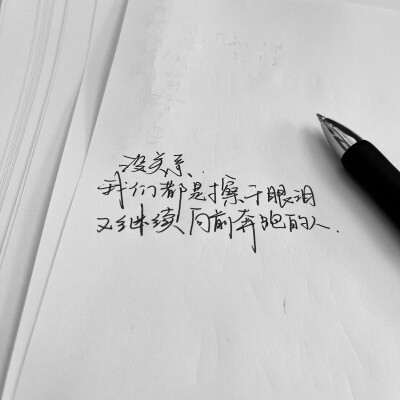 没关系.
我们都是擦干眼泪
又继续向前奔跑的人.